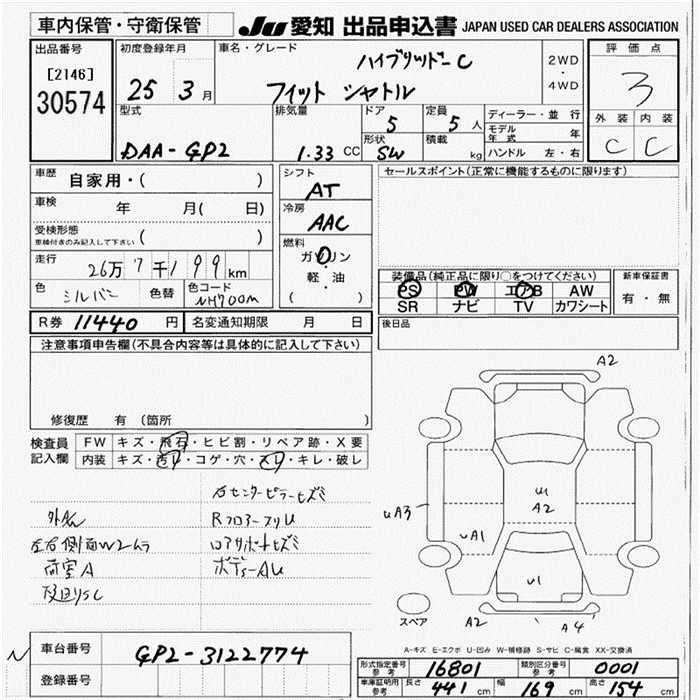 車内保管・守衛保管
JU 愛知 出品申込書 JAPAN USED CAR DEALERS ASSOCIATION
出品番号
[2146]
30574
初度登録年月
25 3月
車名・グレード
ハイブリッド-C
フィット シャトル
2WD
・
4WD
評価点
3
外装 内装
C C
型式
DAA-GP2
排気量
1.33 CC
ドア
5
形状
SW
定員
5人
積載
kg
ディーラー・並行
モデル年式 年
ハンドル 左・右
車歴 自家用・( )
車検 年 月( 日)
受検形態
車検付きのみ記入して下さい ( )
走行
26万7千199km
色
シルバー
色替
色コード
NH700M
シフト
AT
冷房
AAC
燃料
ガソリン
軽・油
( )
セールスポイント(正常に機能するものに限ります)
装備品(純正品に限り○をつけてください)
PS PW エアB AW
SR ナビ TV カワシート
新車保証書
有・無
後日品
R券 11440 円
名変通知期限 月 日
注意事項申告欄(不具合内容等は具体的に記入して下さい)
修復歴 有 (箇所 )
検査員記入欄
FW キズ・飛石・ヒビ割・リペア跡・X要
内装 キズ・汚れ・コゲ・穴・スレ・キレ・破レ
右センターピラーヒズミ
RフロアーフリU
ロアサポートヒズミ
ボデーAU
左右側面W2ムラ
荷室A
A2
U1
A2
UA3
UA1
U1
A2
A4
スペア
A-キズ E-エクボ U-凹み W-補修跡 S-サビ C-腐食 XX-交換済
車台番号
GP2-3122774
登録番号
型式指定番号
参考
16801
類別区分番号
参考
0001
車庫証明用
参考
長さ 441 cm
幅 169 cm
高さ 154 cm